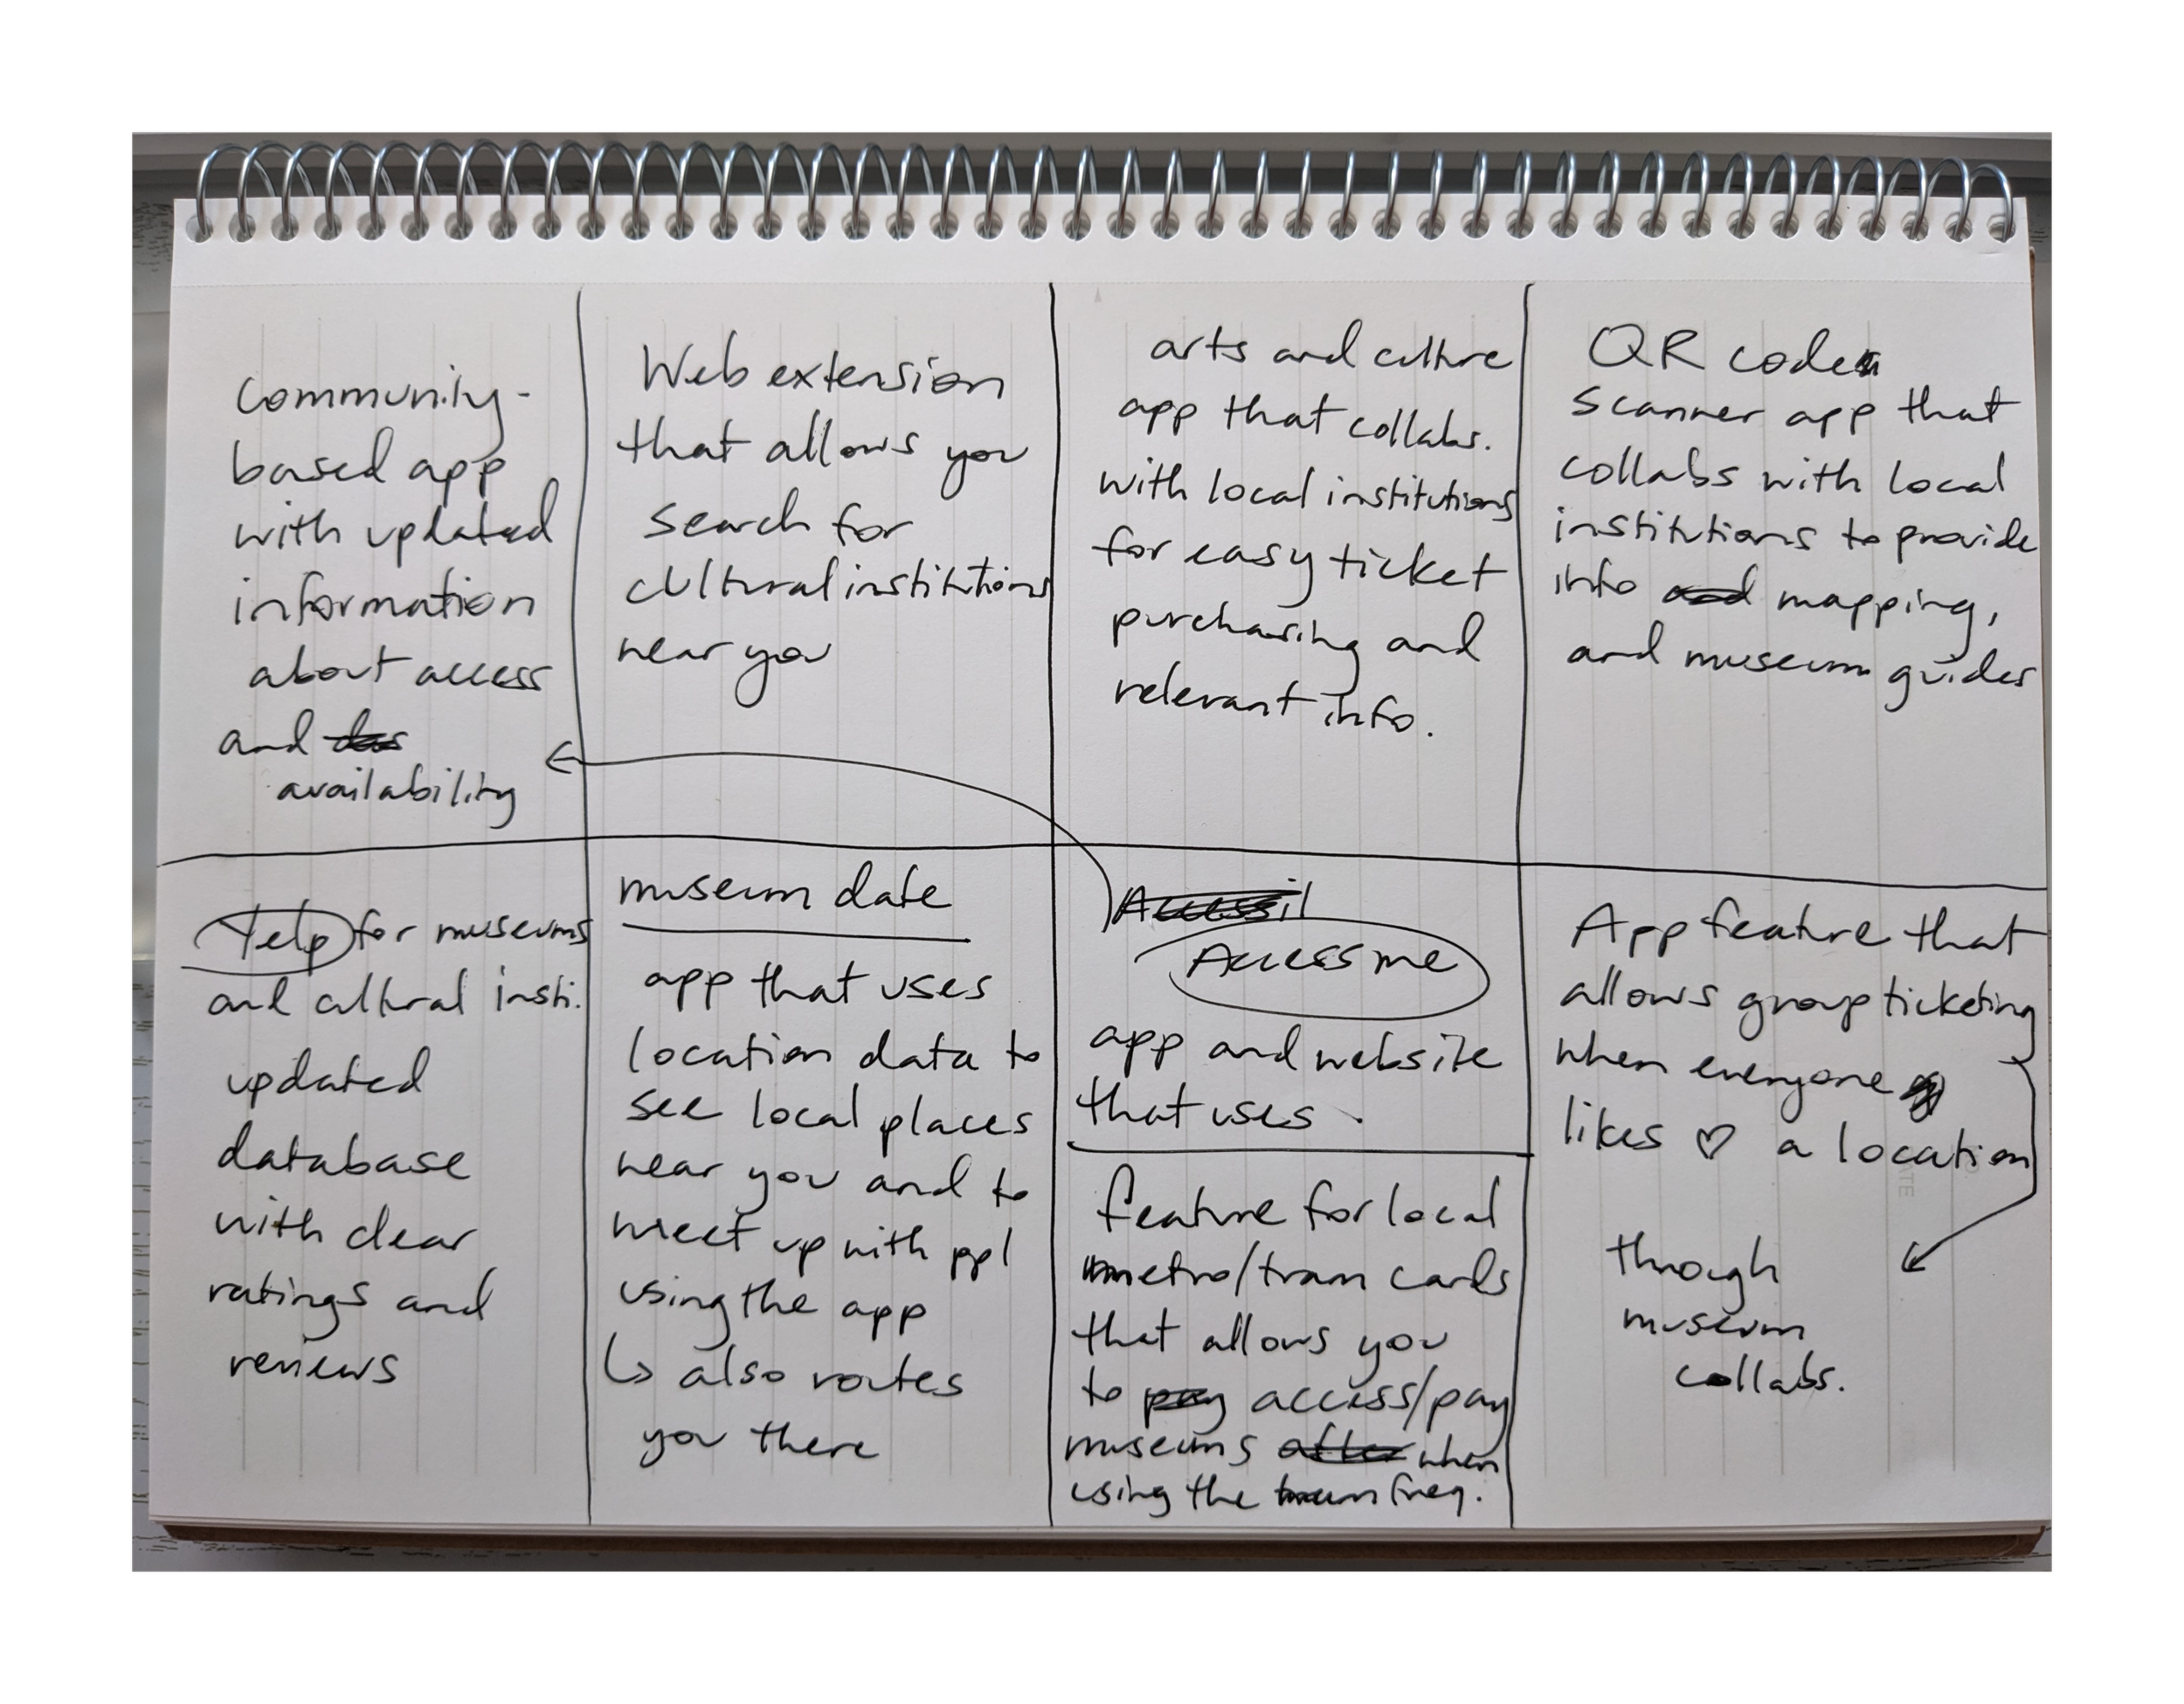 Community-
based app
with updated
information
about access
and
availability
Web extension
that allows you
search for
cultural institutions
near you
arts and culture
app that collabs.
with local institutions
for easy ticket
purchasing and
relevant info.
QR code
scanner app that
collabs with local
institutions to provide
info and mapping,
and museum guides
Yelp for museums
and cultural insti.
updated
database
with clear
ratings and
reviews
museum date
app that uses
location data to
see local places
near you and to
meet up with ppl
using the app
↳ also routes
you there
Accessil
Access me
app and website
that uses
feature for local
metro/tram cards
that allows you
to pay access/pay
museums after when
using the tram freq.
App feature that
allows group ticketing
when everyone
likes ♡ a location
through
museum
collabs.